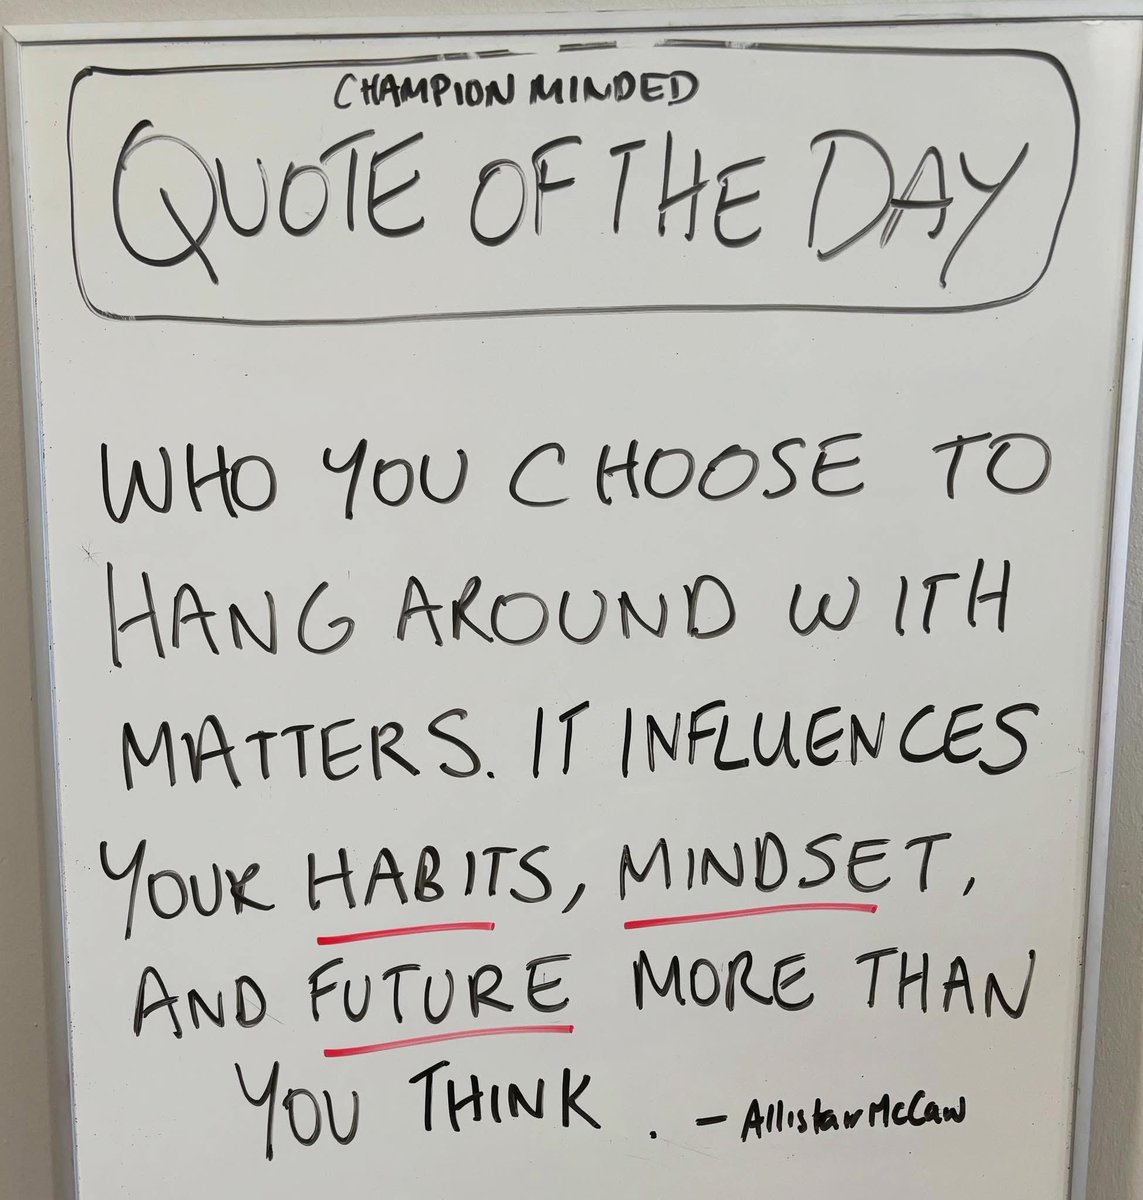 CHAMPION MINDED
QUOTE OF THE DAY
WHO YOU CHOOSE TO
HANG AROUND WITH
MATTERS. IT INFLUENCES
YOUR HABITS, MINDSET,
AND FUTURE MORE THAN
YOU THINK. - Allistair McCaw